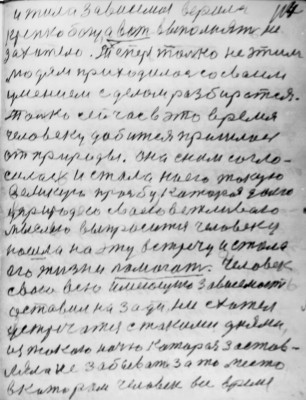 и тила зависимых верила
крепко богца вот выполнять не
захотело. Теперь только не этим
людям приходилося со своим
умением с делом разбираться.
Только сейчас в это время
человеку добится пришлось
от природы. Она с ним согло-
силась и стала на его такую
великую прозбу которая долго
природою своею вежливаю
мыслью выпросить человеку
пошла на эту встречу и стала
его жизни помогать. Человек
свою всю имеющую зависимость
оставил на зади, ни схотел
встречатся с такими днями,
из такою ночю которая застав-
ляла не забывать за то место
в котором человек все время